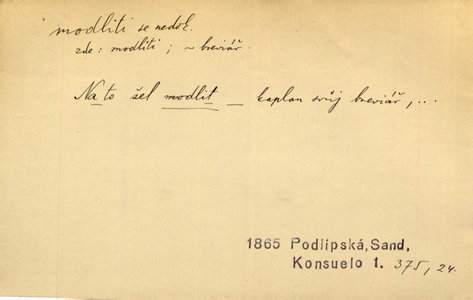 modliti se nedok.
zde: modliti; ~ breviář.
Na to šel modlit _ kaplan svůj breviář, ...
1865 Podlipská, Sand,
Konsuelo 1. 375, 24.